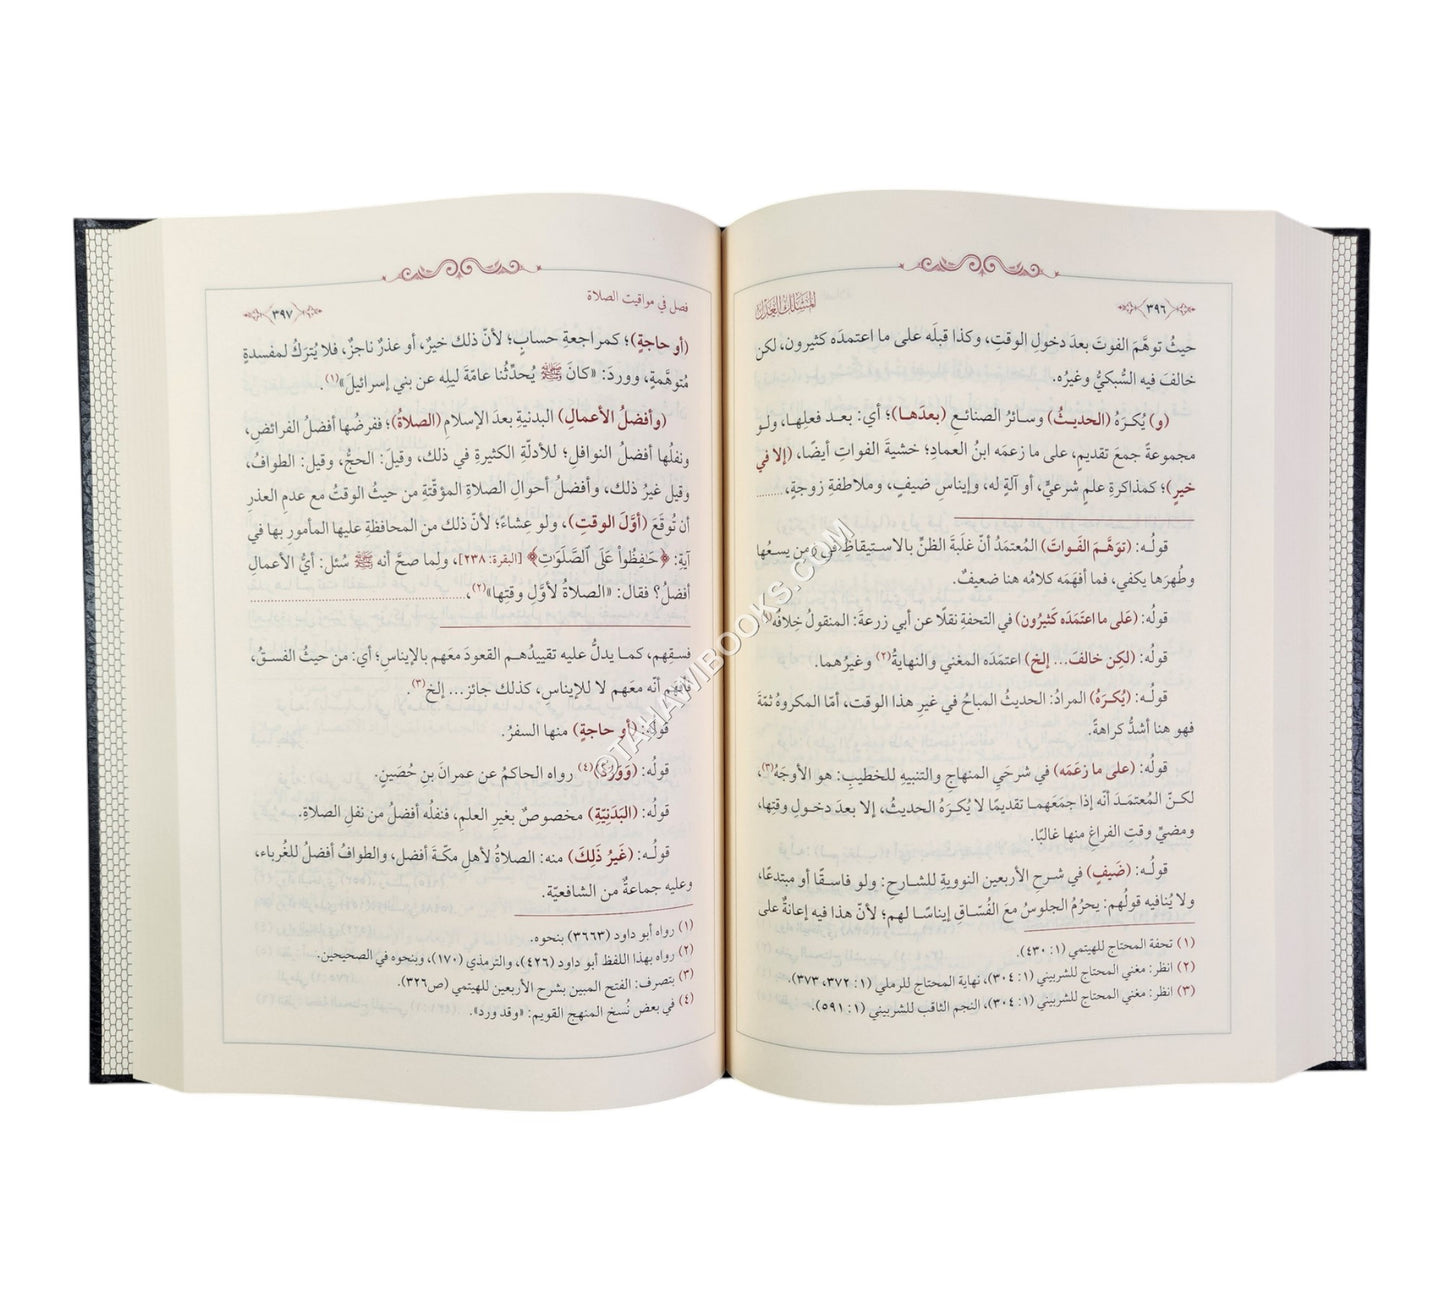 ٣٩٦
المنهل العذب
حيثُ توهَّمَ الفوتَ بعدَ دخولِ الوقتِ، وكذا قبلَه على ما اعتمدَه كثيرون، لكن
خالفَ فيه السُّبكيُّ وغيرُه.
(و) يُكرَهُ (الحديثُ) وسائرُ الصنائعِ (بعدَها)؛ أي: بعد فعلِها، ولو
مجموعةً جمعَ تقديمٍ، على ما زعمَه ابنُ العمادِ؛ خشيةَ الفواتِ أيضًا، (إلا في
خيرٍ)؛ كمذاكرةِ علمٍ شرعيٍّ، أو آلةٍ له، وإيناسِ ضيفٍ، وملاطفةِ زوجةٍ،
قولُه: (توَهَّمَ الفَواتَ) المُعتمَدُ أنّ غلَبةَ الظنِّ بالاستيقاظِ في زمنٍ يسعُها
وطُهرَها يكفي، فما أفهَمَه كلامُه هنا ضعيفٌ.
قولُه: (عَلى ما اعتَمَدَه كَثيرُون) في التحفةِ نقلًا عن أبي زرعةَ: المنقولُ خِلافُه(١).
قولُه: (لكن خالفَ... إلخ) اعتمَدَه المغني والنهايةُ(٢) وغيرُهما.
قولُه: (يُكرَهُ) المرادُ: الحديثُ المباحُ في غيرِ هذا الوقتِ، أمّا المكروهُ ثمّةَ
فهو هنا أشدُّ كراهةً.
قولُه: (على ما زعَمَه) في شرحَي المنهاجِ والتنبيهِ للخطيبِ: هو الأوجَهُ(٣)،
لكنّ المُعتمَدَ أنّه إذا جمَعَهما تقديمًا لا يُكرَهُ الحديثُ، إلا بعدَ دخولِ وقتِها،
ومضيِّ وقتِ الفراغِ منها غالبًا.
قولُه: (ضَيفٍ) في شرحِ الأربعين النوويةِ للشارحِ: ولو فاسقًا أو مبتدعًا،
ولا يُنافيه قولُهم: يحرُمُ الجلوسُ معَ الفُسّاقِ إيناسًا لهم؛ لأنّ هذا فيه إعانةٌ على
(١) تحفة المحتاج للهيتمي (١: ٤٣٠).
(٢) انظر: مغني المحتاج للشربيني (١: ٣٠٤)، نهاية المحتاج للرملي (١: ٣٧٢، ٣٧٣).
(٣) انظر: مغني المحتاج للشربيني (١: ٣٠٤)، النجم الثاقب للشربيني (١: ٥٩١).
فصل في مواقيت الصلاة
٣٩٧
(أو حاجةٍ)؛ كمراجعةِ حسابٍ؛ لأنّ ذلك خيرٌ، أو عذرٌ ناجزٌ، فلا يُترَكُ لمفسدةٍ
مُتوهَّمةٍ، ووردَ: «كانَ ﷺ يُحدِّثُنا عامّةَ ليلِه عن بني إسرائيلَ»(١).
(وأفضلُ الأعمالِ) البدنيةِ بعدَ الإسلامِ (الصلاةُ)؛ ففرضُها أفضلُ الفرائضِ،
ونفلُها أفضلُ النوافلِ؛ للأدلّةِ الكثيرةِ في ذلك، وقيلَ: الحجُّ، وقيل: الطوافُ،
وقيل غيرُ ذلك، وأفضلُ أحوالِ الصلاةِ المؤقّتةِ من حيثُ الوقتُ مع عدمِ العذرِ
أن تُوقَعَ (أوَّلَ الوقتِ)، ولو عِشاءً؛ لأنّ ذلك من المحافظةِ عليها المأمورِ بها في
آيةِ: ﴿حَٰفِظُواْ عَلَى ٱلصَّلَوَٰتِ﴾ [البقرة: ٢٣٨]، ولِما صحَّ أنه ﷺ سُئل: أيُّ الأعمال
أفضلُ؟ فقال: «الصلاةُ لأوَّلِ وقتِها»(٢)،
فسقِهم، كما يدلُّ عليه تقييدُهم القعودَ معَهم بالإيناسِ؛ أي: من حيثُ الفسقُ،
فأفهَمَ أنّه معَهم لا للإيناسِ، كذلك جائز... إلخ(٣).
قولُه: (أو حاجةٍ) منها السفرُ.
قولُه: (وَوَرَدَ)(٤) رواه الحاكمُ عن عمرانَ بن حُصَينٍ.
قولُه: (البَدَنِيّةِ) مخصوصٌ بغيرِ العلمِ، فنفلُه أفضلُ من نفلِ الصلاةِ.
قولُه: (غَيرُ ذَلِكَ) منه: الصلاةُ لأهلِ مكّةَ أفضل، والطوافُ أفضلُ للغُرباء،
وعليه جماعةٌ من الشافعيّة.
(١) رواه أبو داود (٣٦٦٣) بنحوه.
(٢) رواه بهذا اللفظ أبو داود (٤٢٦)، والترمذي (١٧٠)، وبنحوه في الصحيحين.
(٣) بتصرف: الفتح المبين بشرح الأربعين للهيتمي (ص٣٢٦).
(٤) في بعض نُسخ المنهج القويم: «وقد ورد».
©TAHAWIBOOKS.COM